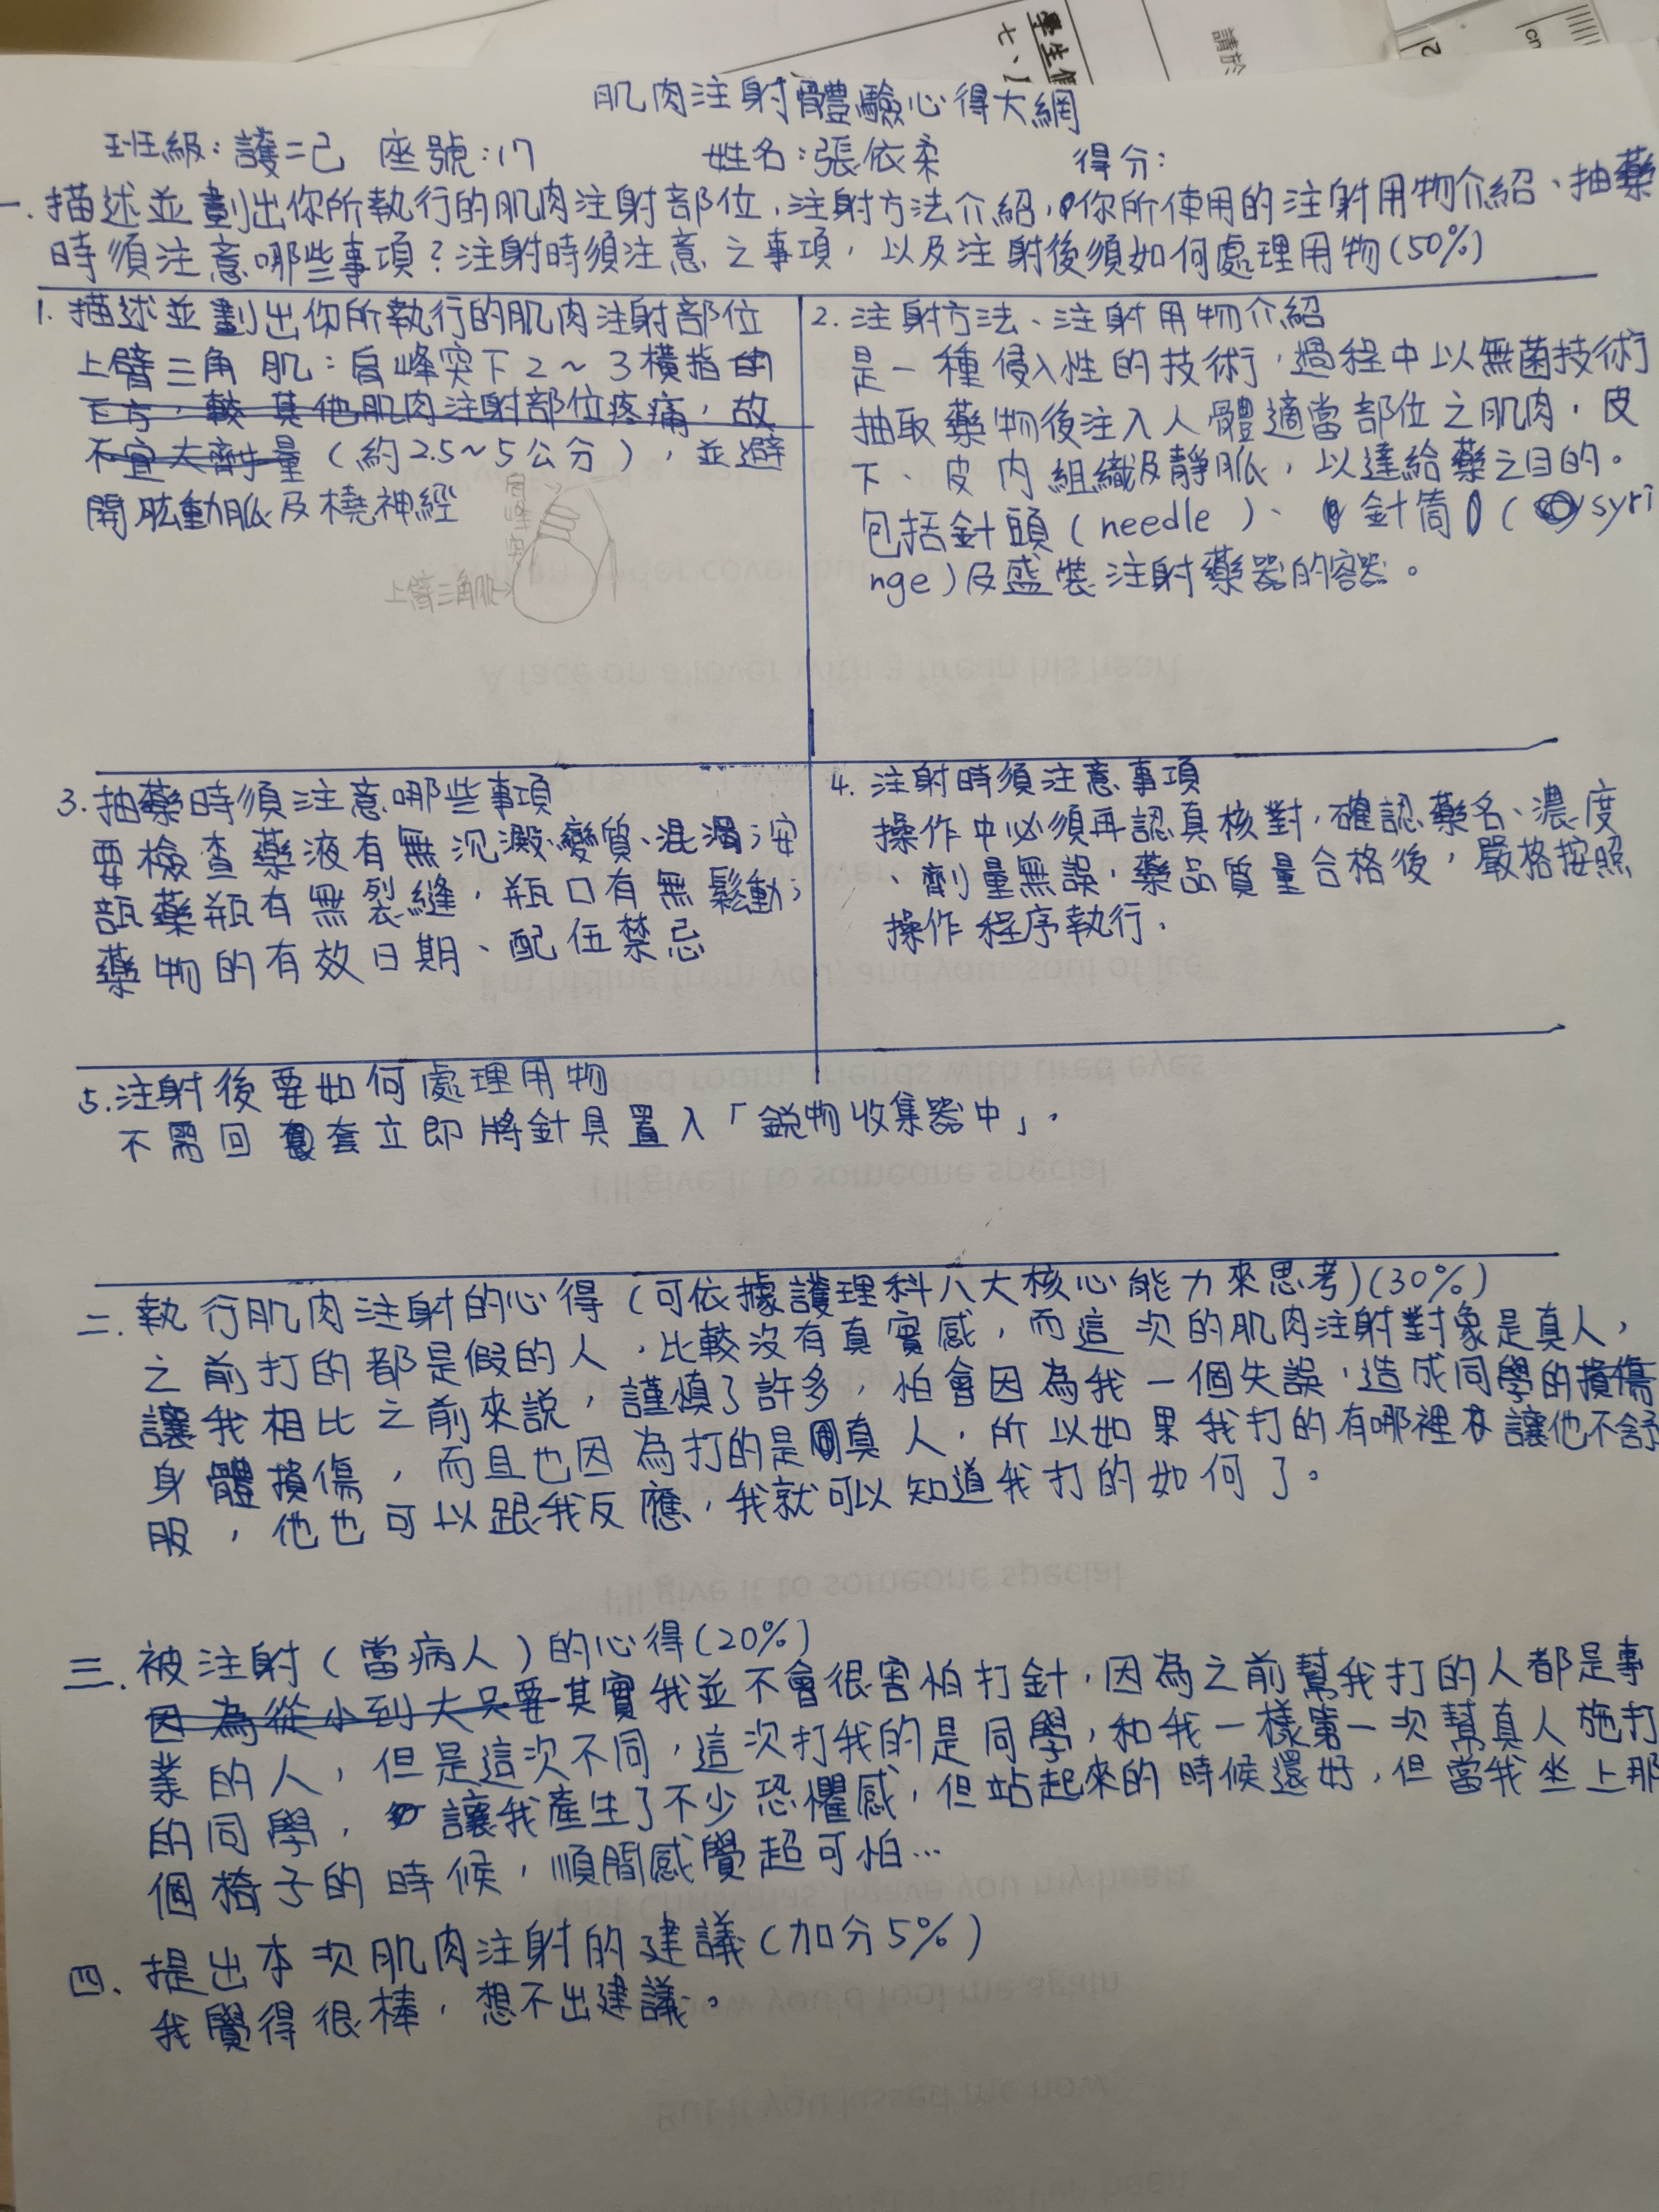 學生
七、
請於
12
cm
肌肉注射體驗心得大網
班級：護二己 座號：17 姓名：張依柔 得分：
一. 描述並劃出你所執行的肌肉注射部位，注射方法介紹，你所使用的注射用物介紹、抽藥
時須注意哪些事項？注射時須注意之事項，以及注射後須如何處理用物(50%)
1. 描述並劃出你所執行的肌肉注射部位
上臂三角肌：肩峰突下2～3橫指的
下方，較其他肌肉注射部位疼痛，故
不宜大劑量（約2.5～5公分），並避
開肱動脈及橈神經
肩峰突
上臂三角肌→
2. 注射方法、注射用物介紹
是一種侵入性的技術，過程中以無菌技術
抽取藥物後注入人體適當部位之肌肉，皮
下、皮內組織及靜脈，以達給藥之目的。
包括針頭（needle）、針筒（syri
nge)及盛裝注射藥器的容器。
3. 抽藥時須注意哪些事項
要檢查藥液有無沉澱、變質、混濁；安
瓿藥瓶有無裂縫，瓶口有無鬆動；
藥物的有效日期、配伍禁忌
4. 注射時須注意事項
操作中必須再認真核對，確認藥名、濃度
、劑量無誤，藥品質量合格後，嚴格按照
操作程序執行.
5. 注射後要如何處理用物
不需回套立即將針具置入「銳物收集器中」.
二. 執行肌肉注射的心得（可依據護理科八大核心能力來思考)(30%)
之前打的都是假的人，比較沒有真實感，而這次的肌肉注射對象是真人，
讓我相比之前來說，謹慎了許多，怕會因為我一個失誤，造成同學的損傷
身體損傷，而且也因為打的是真人，所以如果我打的有哪裡讓他不舒
服，他也可以跟我反應，我就可以知道我打的如何了。
三. 被注射（當病人）的心得(20%)
因為從小到大只要其實我並不會很害怕打針，因為之前幫我打的人都是事
業的人，但是這次不同，這次打我的是同學，和我一樣第一次幫真人施打
的同學，讓我產生了不少恐懼感，但站起來的時候還好，但當我坐上那
個椅子的時候，順間感覺超可怕…
四. 提出本次肌肉注射的建議（加分5%）
我覺得很棒，想不出建議。